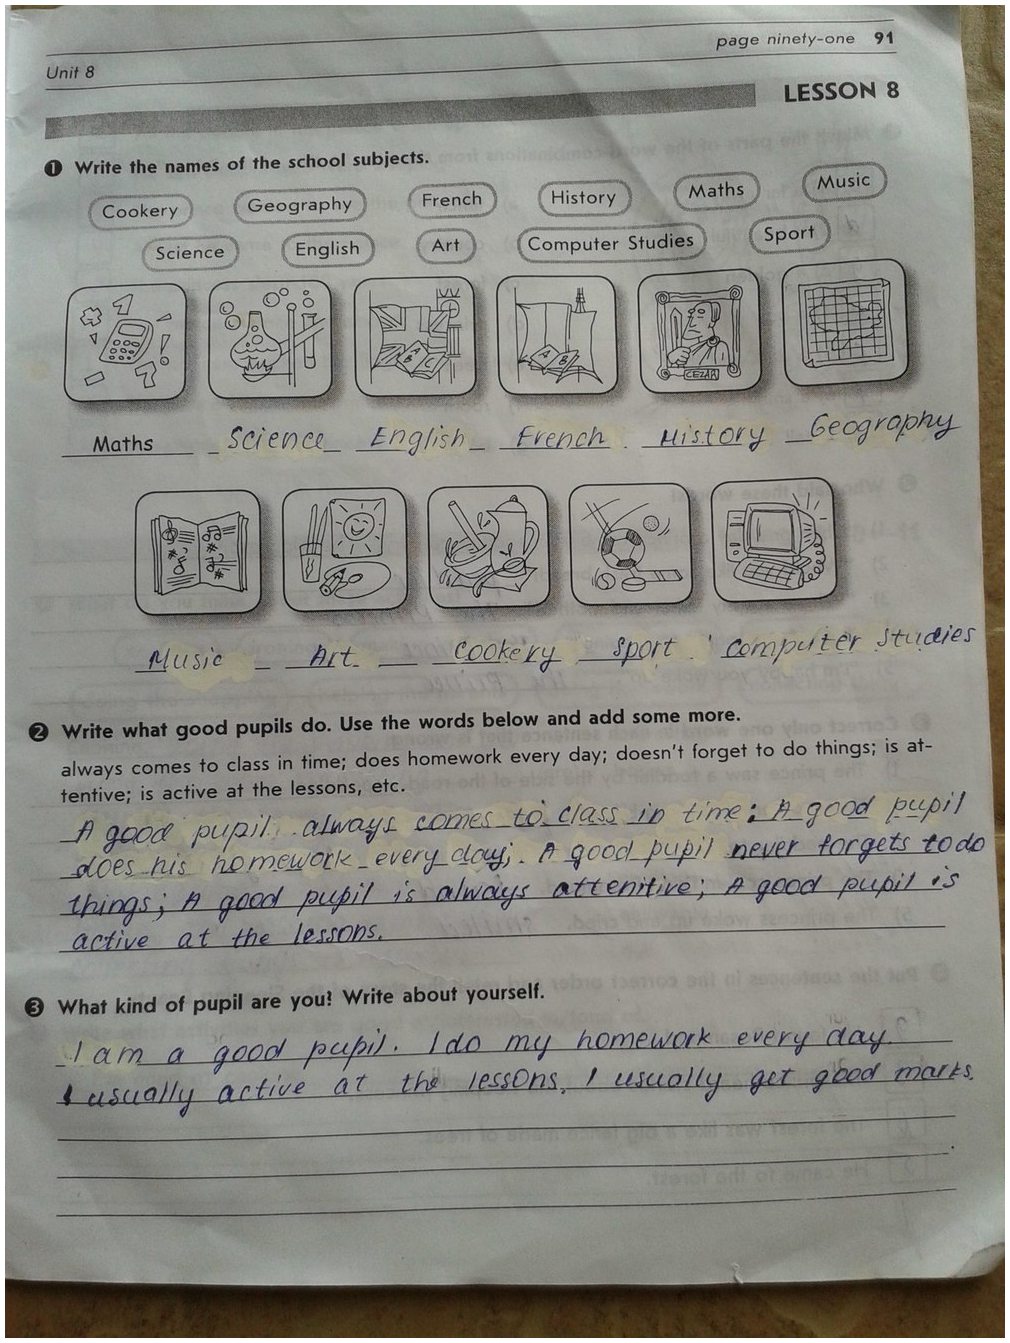 page ninety-one 91
Unit 8
LESSON 8
1 Write the names of the school subjects.
Cookery Geography French History Maths Music
Science English Art Computer Studies Sport
A B C A B CEZAR
Maths Science English French History Geography
Music Art Cookery Sport Computer Studies
2 Write what good pupils do. Use the words below and add some more.
always comes to class in time; does homework every day; doesn't forget to do things; is at-
tentive; is active at the lessons, etc.
A good pupil always comes to class in time; A good pupil
does his homework every day; A good pupil never forgets to do
things; A good pupil is always attenitive; A good pupil is
active at the lessons.
3 What kind of pupil are you? Write about yourself.
I am a good pupil. I do my homework every day.
I usually active at the lessons. I usually get good marks.